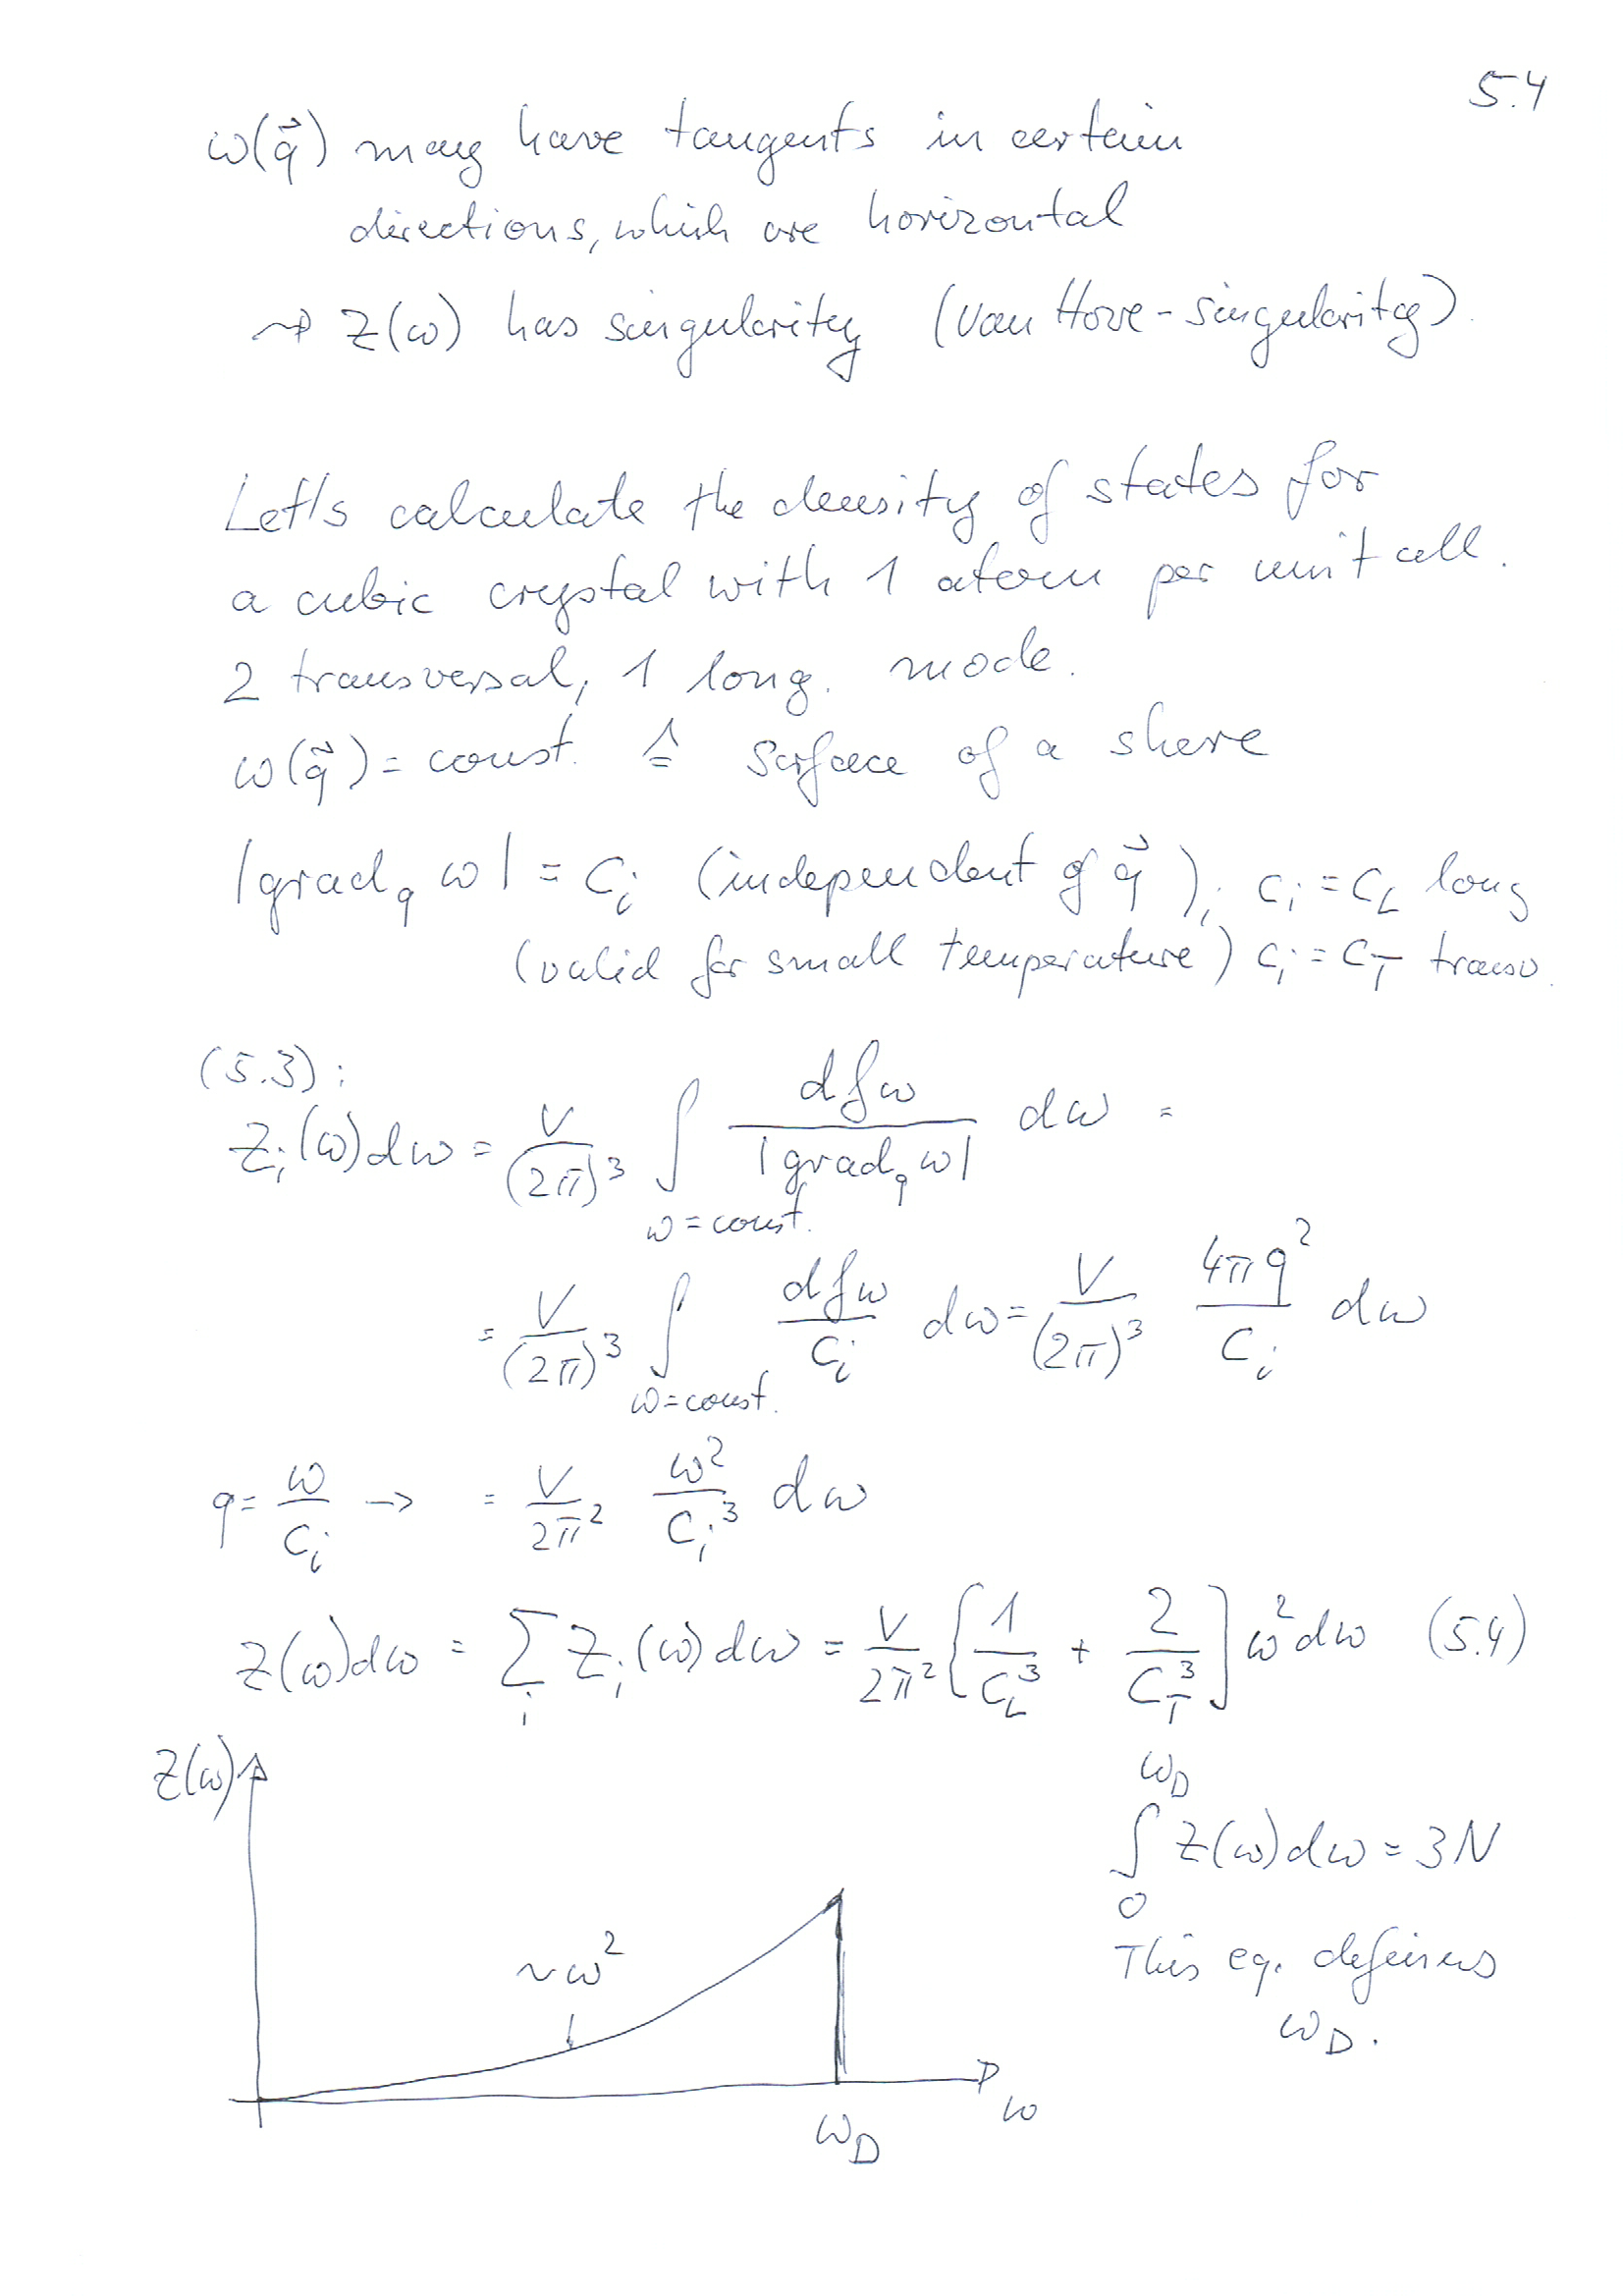 5.4
ω(q⃗) may have tangents in certain
directions, which are horizontal
⇝ Z(ω) has singularity (Van Hove-Singularity).
Let's calculate the density of states for
a cubic crystal with 1 atom per unit cell.
2 transversal, 1 long. mode.
ω(q⃗) = const. ≙ Surface of a shere
|grad_q ω| = C_i (independent of q⃗); C_i = C_L long
(valid for small temperature) C_i = C_T transv.
(5.3):
Z_i(ω)dω = V/(2π)³ ∫_{ω=const.} df_ω/|grad_q ω| dω =
= V/(2π)³ ∫_{ω=const.} df_ω/C_i dω = V/(2π)³ 4πq²/C_i dω
q = ω/C_i → = V/2π² ω²/C_i³ dω
Z(ω)dω = ∑_i Z_i(ω)dω = V/2π² [1/C_L³ + 2/C_T³] ω²dω (5.4)
Z(ω)
∫_0^{ω_D} Z(ω)dω = 3N
This eq. defines
ω_D.
~ω²
ω
ω_D